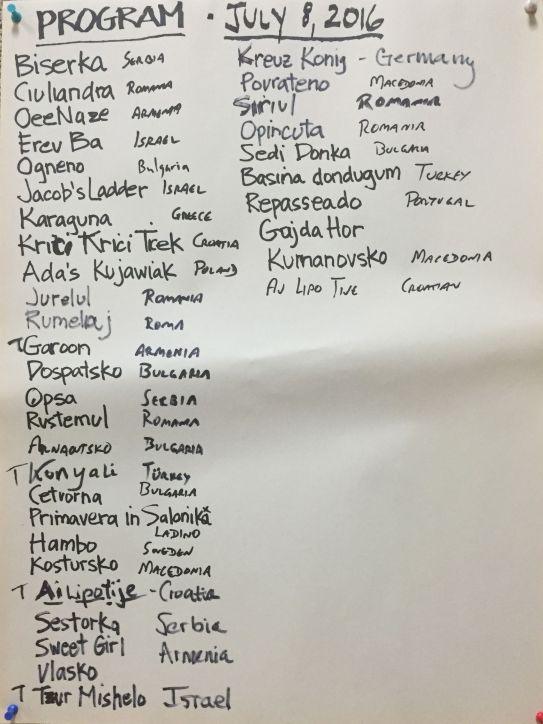 PROGRAM · JULY 8, 2016
Biserka SERBIA
Ciuliandra ROMANIA
OeeNaze ARMENIA
Erev Ba ISRAEL
Ogneno Bulgaria
Jacob's Ladder ISRAEL
Karaguna GREECE
Kriči Krici Ticek CROATIA
Ada's Kujawiak POLAND
Jurelul ROMANIA
Rumelaj ROMA
T Garoon ARMENIA
Dospatsko BULGARIA
Opsa SERBIA
Rustemul ROMANIA
ARNAOUTSKO BULGARIA
T Konyali TURKEY
Cetvorna BULGARIA
Primavera in Salonika
LADINO
Hambo SWEDEN
Kostursko MACEDONIA
T Ai Lipo tije - Croatia
Sestorka Serbia
Sweet Girl Armenia
Vlasko
T Tzur Mishelo Israel
Kreuz Konig - Germany
Povrateno MACEDONIA
Siriul ROMANIA
Opincuta ROMANIA
Sedi Donka BULGARIA
Basina dondugum TURKEY
Repasseado PORTUGAL
Gajda Hor
Kumanovsko MACEDONIA
AJ LIPO TIJE CROATIAN